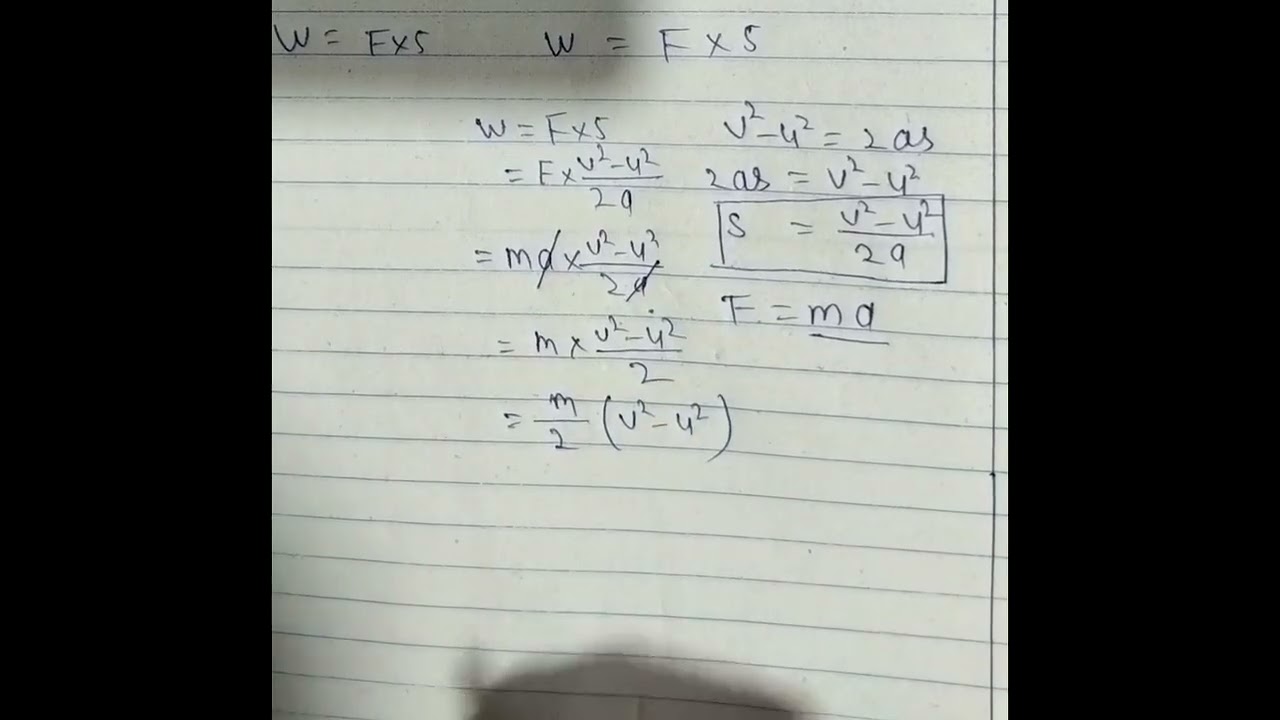 W = F×S W = F × S
W = F×S
= F× v²-u²/2a
= ma × v²-u²/2a
= m × v²-u²/2
= m/2 (v²-u²)
v²-u² = 2as
2as = v²-u²
S = v²-u²/2a
F = ma